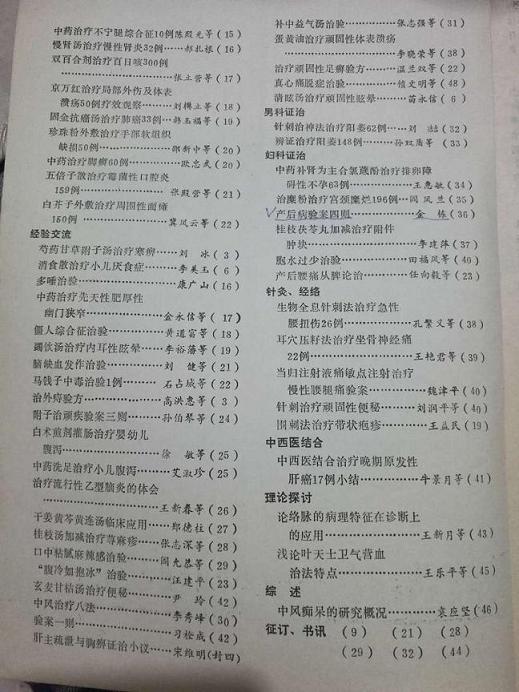 中药治疗不宁腿综合征10例陈殿光等(15)
慢肾汤治疗慢性肾炎32例……郝扎根(16)
双百合剂治疗百日咳300例
……………………张士营等(17)
京万红治疗局部外伤及体表
溃疡50例疗效观察……刘樽立等(18)
固金抗癌汤治疗肺癌33例…韩玉福等(19)
珍珠粉外敷治疗手部软组织
缺损50例……………邵新中等(20)
中药治疗脚癣60例…………欧忠武(20)
五倍子散治疗霉菌性口腔炎
159例………………张殿营等(21)
白芥子外敷治疗周围性面瘫
150例………………冀风云等(22)
经验交流
芍药甘草附子汤治疗寒痹……刘 冰(3)
消食散治疗小儿厌食症………李英玉(6)
多唾治验…………………康广山(16)
中药治疗先天性肥厚性
幽门狭窄……………金永信等(17)
僵人综合征治验…………黄道富等(18)
蠲饮汤治疗内耳性眩晕……李裕藩等(19)
脑缺血发作治验……………刘 健等(21)
马钱子中毒治验1例………石占城等(22)
治外痔验方………………高洪惠等(3)
附子治顽疾验案三则………孙伯琴等(24)
白术煎剂灌肠治疗婴幼儿
腹泻…………………徐 敏等(25)
中药洗足治疗小儿腹泻………艾淑珍(25)
治疗流行性乙型脑炎的体会
…………………………王新春等(26)
干姜黄芩黄连汤临床应用……郑德柱(27)
桂枝汤加减治疗荨麻疹……张志深等(28)
口中粘腻麻辣感治验………阎允恭等(29)
“腹冷如抱冰”治验………汪建平(23)
玄麦甘桔汤治疗便秘………尹 玲(42)
中风治疗八法………………李秀峰(30)
验案一则…………………习检成(42)
肝主疏泄与胸痹证治小议……宋维明(封四)
补中益气汤治验…………张志强等(31)
蛋黄油治疗顽固性体表溃疡
……………………李晓荣等(38)
治疗顽固性足癣验方………温兰双等(22)
真心痛脱症治验……………傎文明等(48)
清眩汤治疗顽固性眩晕……苗永信(6)
男科证治
针刺治神法治疗阳萎62例……刘 喆(32)
辨证治疗阳萎148例………孙双盾等(33)
妇科证治
中药补肾为主合氯蔗酚治疗排卵障
碍性不孕63例…………王惠敏(34)
治糜粉治疗宫颈糜烂196例…阎凤兰(35)
产后病验案四则……………金 栋(36)
桂枝茯苓丸加减治疗附件
肿块…………………李建萍(37)
胞水过少治验……………田福凤等(40)
产后腰痛从脾论治…………任向毅等(23)
针灸、经络
生物全息针刺法治疗急性
腰扭伤26例……………孔繁义等(38)
耳穴压籽法治疗坐骨神经痛
22例…………………王艳君等(39)
当归注射液痛敏点注射治疗
慢性腰腿痛验案…………魏津平(40)
针刺治疗顽固性便秘………刘润平等(40)
围刺法治疗带状疱疹………王益民(19)
中西医结合
中西医结合治疗晚期原发性
肝癌17例小结…………牛景月等(41)
理论探讨
论络脉的病理特征在诊断上
的应用………………王新月等(43)
浅论叶天士卫气营血
治法特点……………王乐平等(45)
综 述
中风痴呆的研究概况…………袁应坚(46)
征订、书讯 (9) (21) (28)
(29) (32) (44)